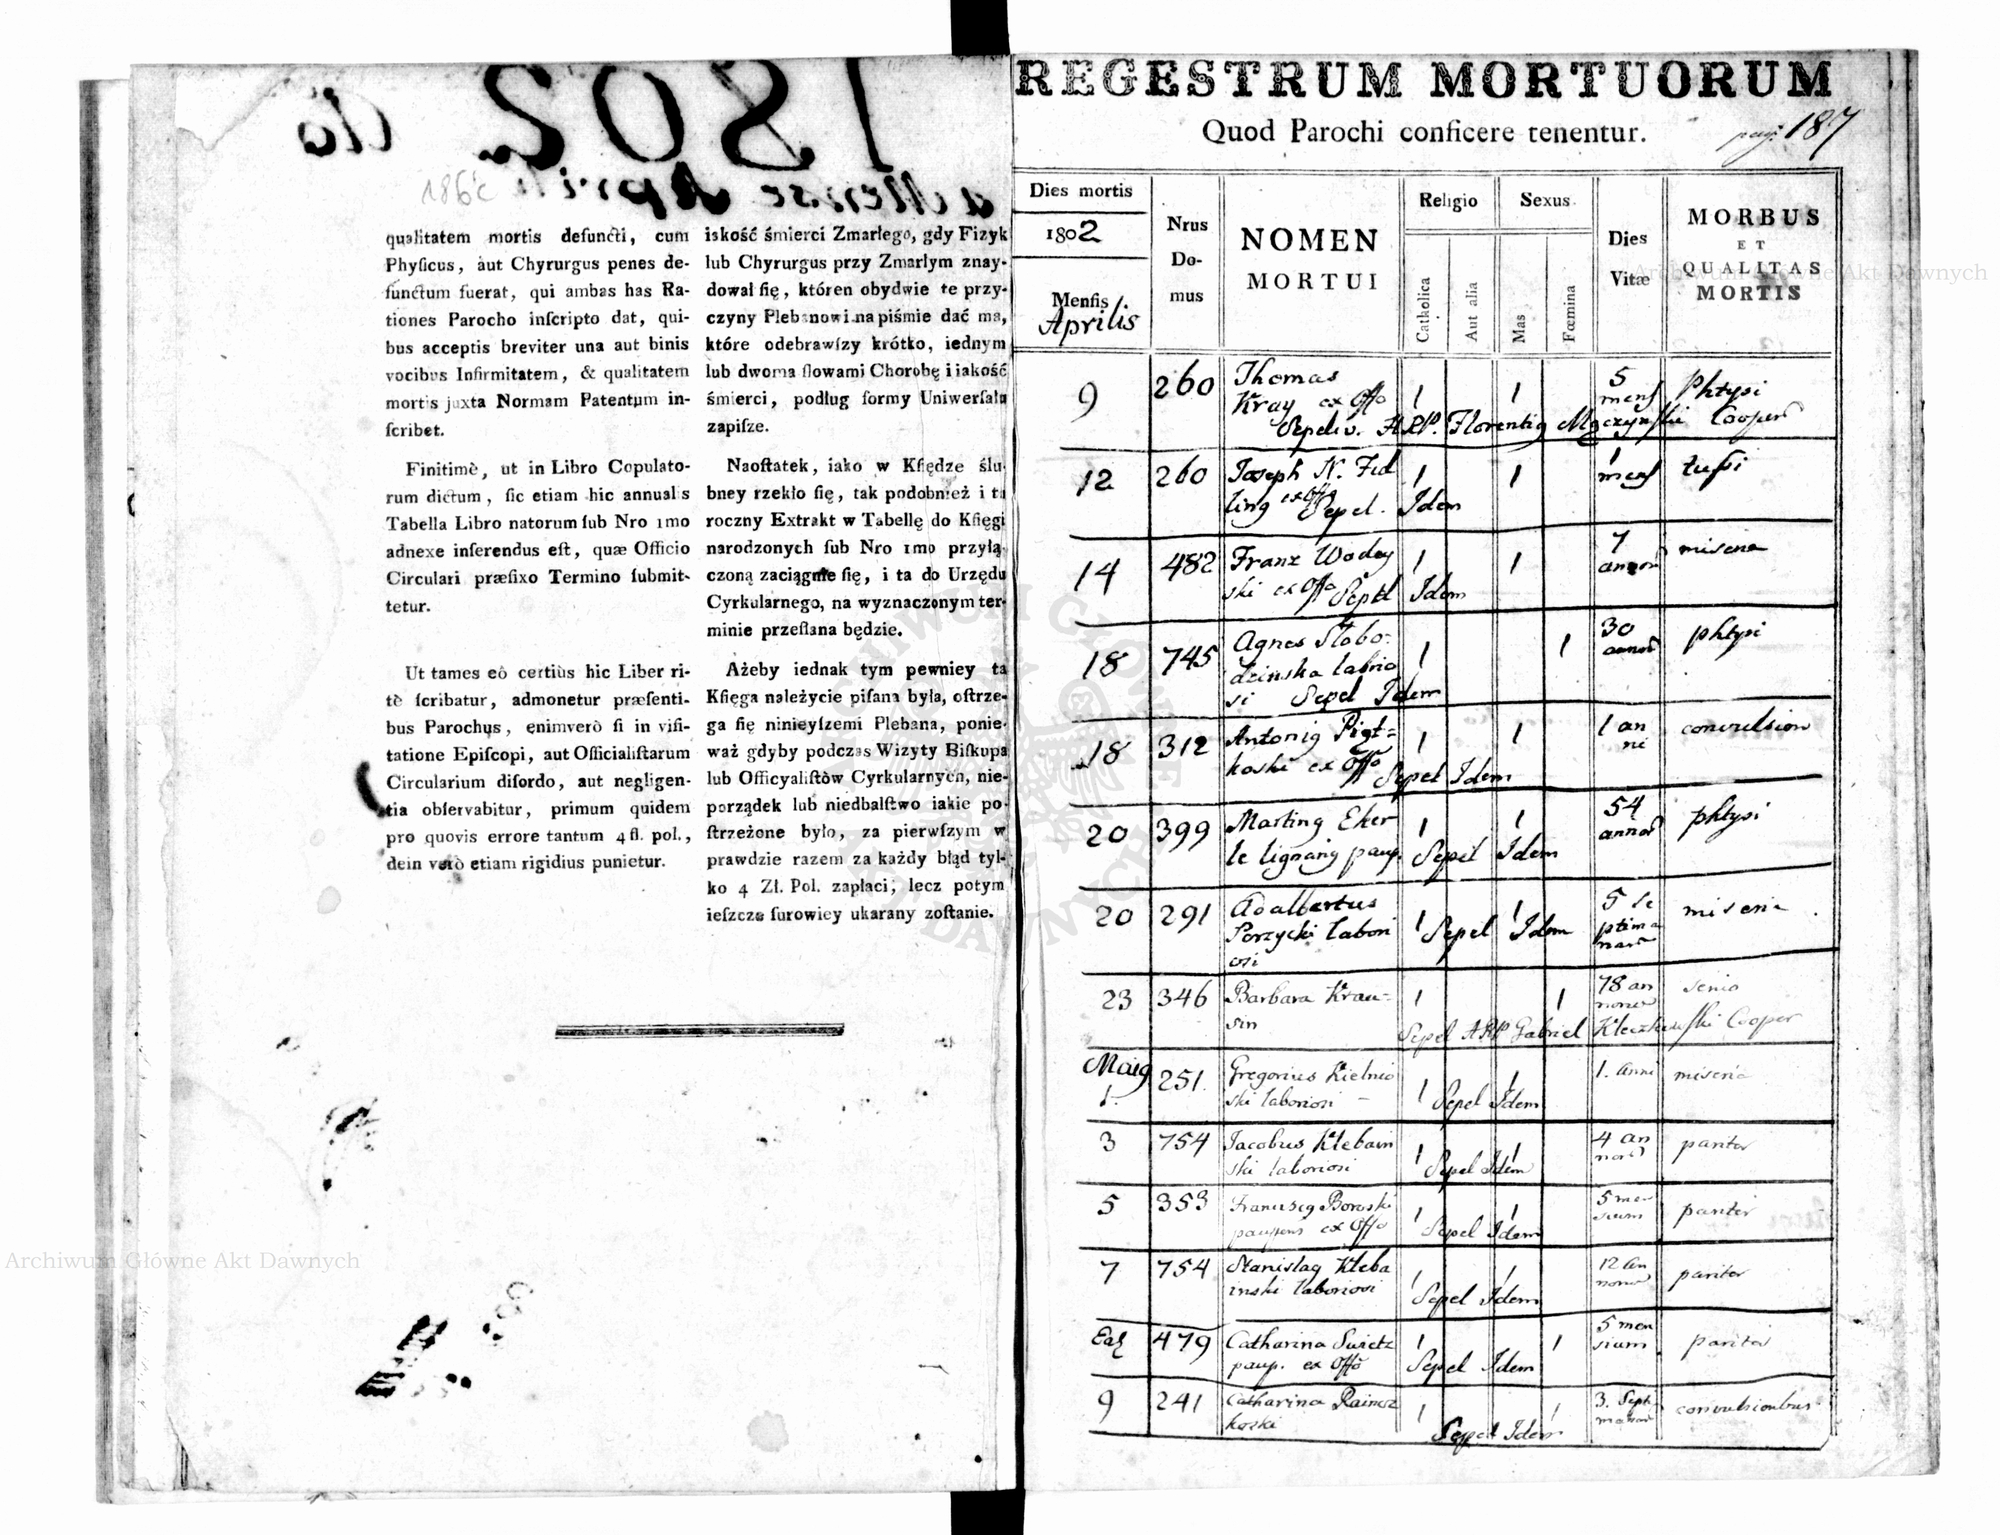 1802
a Mense Aprili
186
qualitatem mortis defuncti, cum
Phyſicus, aut Chyrurgus penes de-
functum fuerat, qui ambas has Ra-
tiones Parocho inſcripto dat, qui-
bus acceptis breviter una aut binis
vocibus Infirmitatem, & qualitatem
mortis juxta Normam Patentum in-
ſcribet.
Finitimè, ut in Libro Copulato-
rum dictum, ſic etiam hic annualis
Tabella Libro natorum ſub Nro 1mo
adnexe inferendus eſt, quæ Officio
Circulari præfixo Termino ſubmit-
tetur.
Ut tames eò certiùs hic Liber ri-
tè ſcribatur, admonetur præſenti-
bus Parochus, enimverò ſi in viſi-
tatione Epiſcopi, aut Officialiſtarum
Circularium diſordo, aut negligen-
tia obſervabitur, primum quidem
pro quovis errore tantum 4 fl. pol.,
dein verò etiam rigidius punietur.
iakość śmierci Zmarłego, gdy Fizyk
lub Chyrurgus przy Zmarłym znay-
dował ſię, któren obydwie te przy-
czyny Plebanowi na piśmie dać ma,
które odebrawſzy krótko, iednym
lub dwoma ſłowami Chorobę i iakość
śmierci, podług formy Uniwerſału
zapiſze.
Naoſtatek, iako w Kſiędze ślu-
bney rzekło ſię, tak podobnież i ta
roczny Extrakt w Tabellę do Kſięgi
narodzonych ſub Nro 1mo przyłą-
czoną zaciągnie ſię, i ta do Urzędu
Cyrkularnego, na wyznaczonym ter-
minie przeſłana będzie.
Ażeby iednak tym pewniey ta
Kſięga należycie piſana była, oſtrze-
ga ſię ninieyſzemi Plebana, ponie-
waż gdyby podczas Wizyty Biſkupa
lub Officyaliſtòw Cyrkularnych, nie-
porządek lub niedbalſtwo iakie po-
ſtrzeżone było, za pierwſzym w
prawdzie razem za każdy błąd tyl-
ko 4 Zł. Pol. zapłaci, lecz potym
ieſzcze ſurowiey ukarany zoſtanie.
REGESTRUM MORTUORUM
Quod Parochi conficere tenentur.
pag. 187
Dies mortis
1802
Menſis
Aprilis
Nrus
Do-
mus
NOMEN
MORTUI
Religio
Catholica
Aut alia
Sexus
Mas
Fœmina
Dies
Vitæ
MORBUS
ET
QUALITAS
MORTIS
9 260 Thomas Kray ex Offo 1 1 5 mens phtysi
Sepeliv. ARP. Florentig Mączyński Cooper
12 260 Joseph N. Fid ling ex offo 1 1 1 mens tussi
Sepel. Idem
14 482 Franz Woday ski ex Offo 1 1 7 annor miseria
Sepel Idem
18 745 Agnes Słobo- dzinska labrio si 1 1 30 annor phtysi
Sepel Idem
18 312 Antonig Pigt- koski ex Offo 1 1 1 an ni convulsion
Sepel Idem
20 399 Marting Eker le lignarig paup. 1 1 54 annor phtysi
Sepel Idem
20 291 Adalbertus Porzycki labori osi 1 1 5 se ptima nar miseria
Sepel Idem
23 346 Barbara Krau- sin 1 1 78 an norum senio
Sepel ARP Gabriel Kleczkowski Cooper
Maig
1. 251. Gregorius Kielnio ski laboriosi 1 1 1. anni miseria
Sepel Idem
3 754 Jacobus Klebain ski laboriosi 1 1 4 an nor pariter
Sepel Idem
5 353 Franciscg Boroski pauperis ex Offo 1 1 5 men sium pariter
Sepel Idem
7 754 Stanislag Kleba inski laboriosi 1 1 12 an norum pariter
Sepel Idem
Ead 479 Catharina Swietz paup. ex Offo 1 1 5 men sium pariter
Sepel Idem
9 241 Catharina Raincz koski 1 1 3. Septi manar convulsionibus
Sepel Idem
Archiwum Główne Akt Dawnych
Archiwum Główne Akt Dawnych
ARCHIWUM GŁÓWNE AKT DAWNYCH